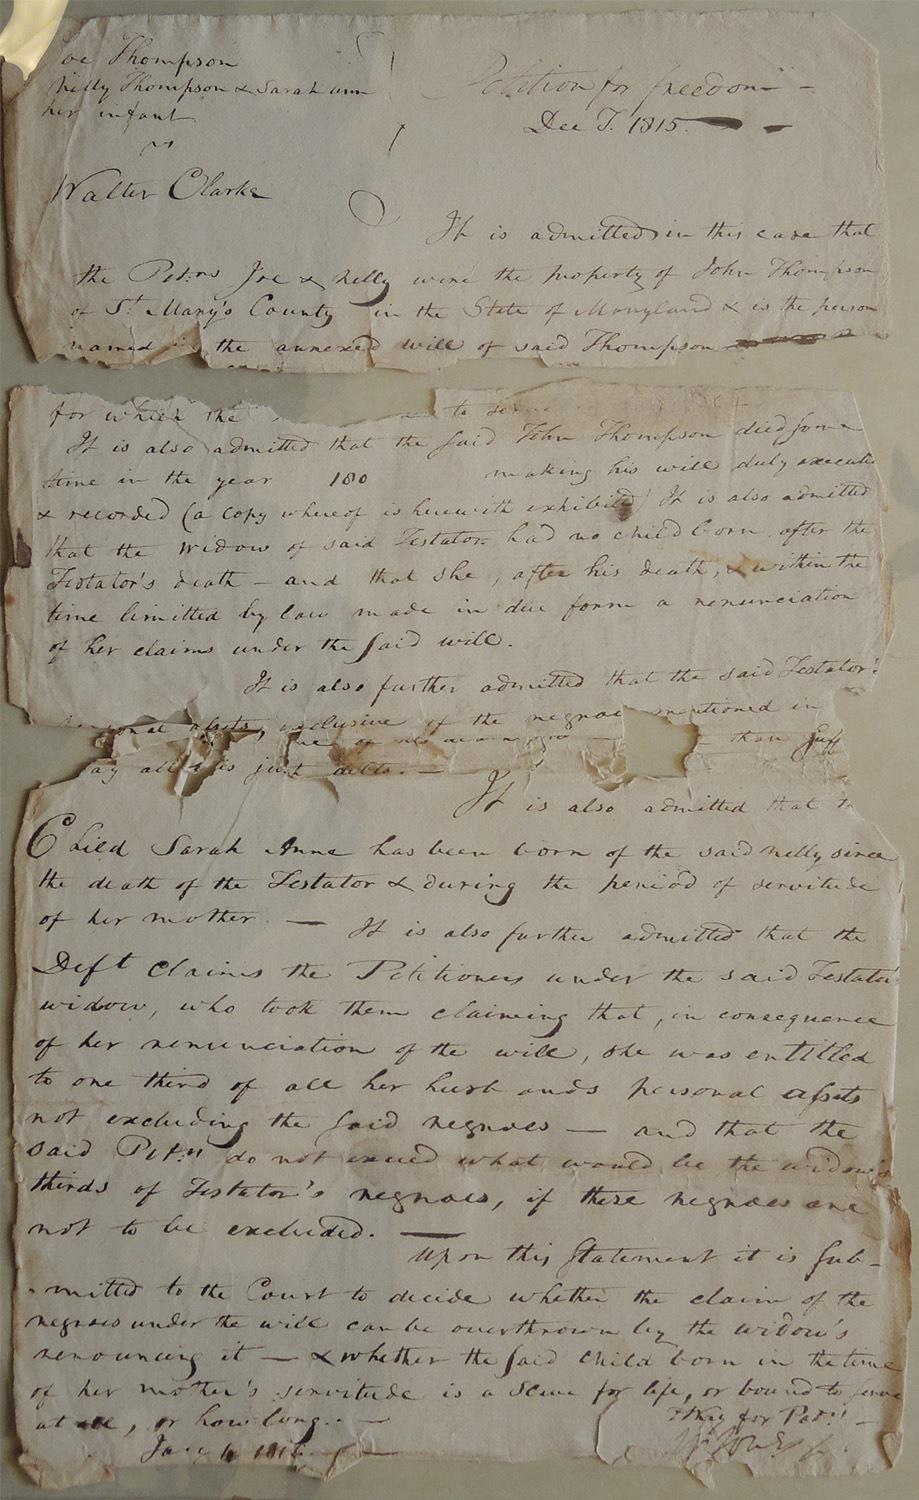 Joe Thompson
Nelly Thompson & Sarah ann
her infant
vs
Walter Clarke
Petition for freedom -
Dec T. 1815.
It is admitted in this case that
the Petnrs Joe & Nelly were the property of John Thompson
of St. Mary's County in the State of Maryland & is the person
named in the annexed will of said Thompson
for which the to serve
It is also admitted that the said John Thompson died some
time in the year 180 making his will duly execute
& recorded (a copy whereof is herewith exhibited) It is also admitted
that the widow of said Testator had no child born after the
Testator's death - and that she, after his death, & within the
time limitted by law made in due form a renunciation
of her claims under the said will.
It is also further admitted that the said Testator's
personal assets, exclusive of the negroes mentioned in
than suff
pay all his just debts. -
It is also admitted that
Child Sarah Anne has been born of the said Nelly since
the death of the Testator & during the period of servitude
of her mother. - It is also further admitted that the
Deft claims the Petitioners under the said Testator
widow, who took them claiming that, in consequence
of her renunciation of the will, she was entitled
to one third of all her husbands personal assets
not excluding the said negroes - and that the
said Petnrs do not exceed what would be the widow's
thirds of Testator's negroes, if these negroes are
not to be excluded. -
Upon this statement it is sub-
-mitted to the Court to decide whether the claim of the
negroes under the will can be overthrown by the widow's
renouncing it - & whether the said child born in the time
of her mother's servitude is a slave for life, or bound to serve
at all, or how long. -
Jany 4 1816
Key for Petnrs -
Jones